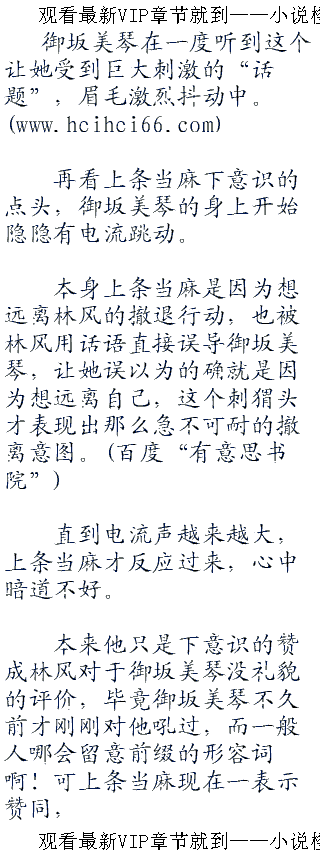 观看最新VIP章节就到——小说楼
御坂美琴在一度听到这个
让她受到巨大刺激的“话
题”，眉毛激烈抖动中。
(www.hcihci66.com)
再看上条当麻下意识的
点头，御坂美琴的身上开始
隐隐有电流跳动。
本身上条当麻是因为想
远离林风的撤退行动，也被
林风用话语直接误导御坂美
琴，让她误以为的确就是因
为想远离自己，这个刺猬头
才表现出那么急不可耐的撤
离意图。(百度“有意思书
院”)
直到电流声越来越大，
上条当麻才反应过来，心中
暗道不好。
本来他只是下意识的赞
成林风对于御坂美琴没礼貌
的评价，毕竟御坂美琴不久
前才刚刚对他吼过，而一般
人哪会留意前缀的形容词
啊！可上条当麻现在一表示
赞同，
观看最新VIP章节就到——小说楼